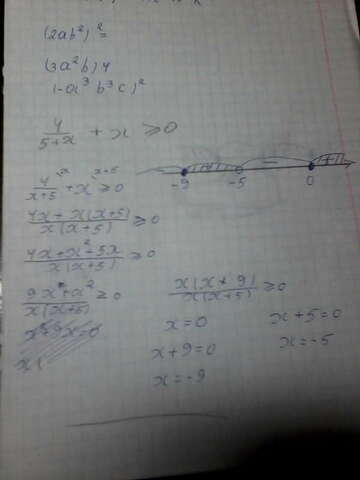 (2ab²)² =
(3a²b)4
(-a³b³c)²
4/(5+x) + x ≥ 0
4/(x+5) + x ≥ 0
-9 -5 0
(4x + x(x+5))/(x(x+5)) ≥ 0
(4x+x²-5x)/(x(x+5)) ≥ 0
(9x+x²)/(x(x+5)) ≥ 0
(x(x+9))/(x(x+5)) ≥ 0
x=0
x+5=0
x+9=0
x=-5
x=-9
x(